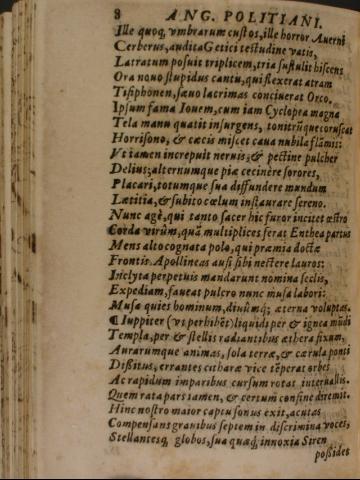 8 ANG. POLITIANI.
Ille quoq, vmbrarum custos, ille horror Auerni
Cerberus, audita Getici testudine vatis,
Latratum posuit triplicem, tria sustulit hiscens
Ora nouo stupidus cantu, qui flexerat atram
Tisiphonen, sæuo lacrimas conciuerat Orco.
Ipsum fama Iouem, cum iam Cyclopea magna
Tela manu quatit insurgens, tonitrúque coruscat
Horrisono, & cæcis miscet caua nubila flāmis:
Vt tamen increpuit neruis, & pectine pulcher
Delius; alternumque piæ cecinêre sorores,
Placari, totumque sua diffundere mundum
Lætitia, & subito cœlum instaurare sereno.
Nunc age, qui tanto sacer hic furor incitet œstro
Corda virûm, quā multiplices ferat Enthea partus
Mens alto cognata polo, qui præmia doctæ
Frontis Apollineas ausi sibi nectere lauros;
Inclyta perpetuis mandarunt nomina seclis,
Expediam, faueat pulcro nunc musa labori:
Musa quies hominum, diuûmq; æterna voluptas.
¶ Iuppiter (vt perhibēt) liquidi per & ignea mūdi
Templa, per & stellis radiantibus æthera fixum,
Aurarumque animas, sola terræ, & cærula ponti
Diffitus, errantes citharæ vice tēperat orbes
Ac rapidum imparibus cursum rotat interuallis.
Quem rata pars tamen, & certum confine diremit.
Hinc nostro maior captu sonus exit, acutas
Compensans grauibus septem in discrimina voces,
Stellantesq; globos, sua quæq; innoxia Siren
possidet